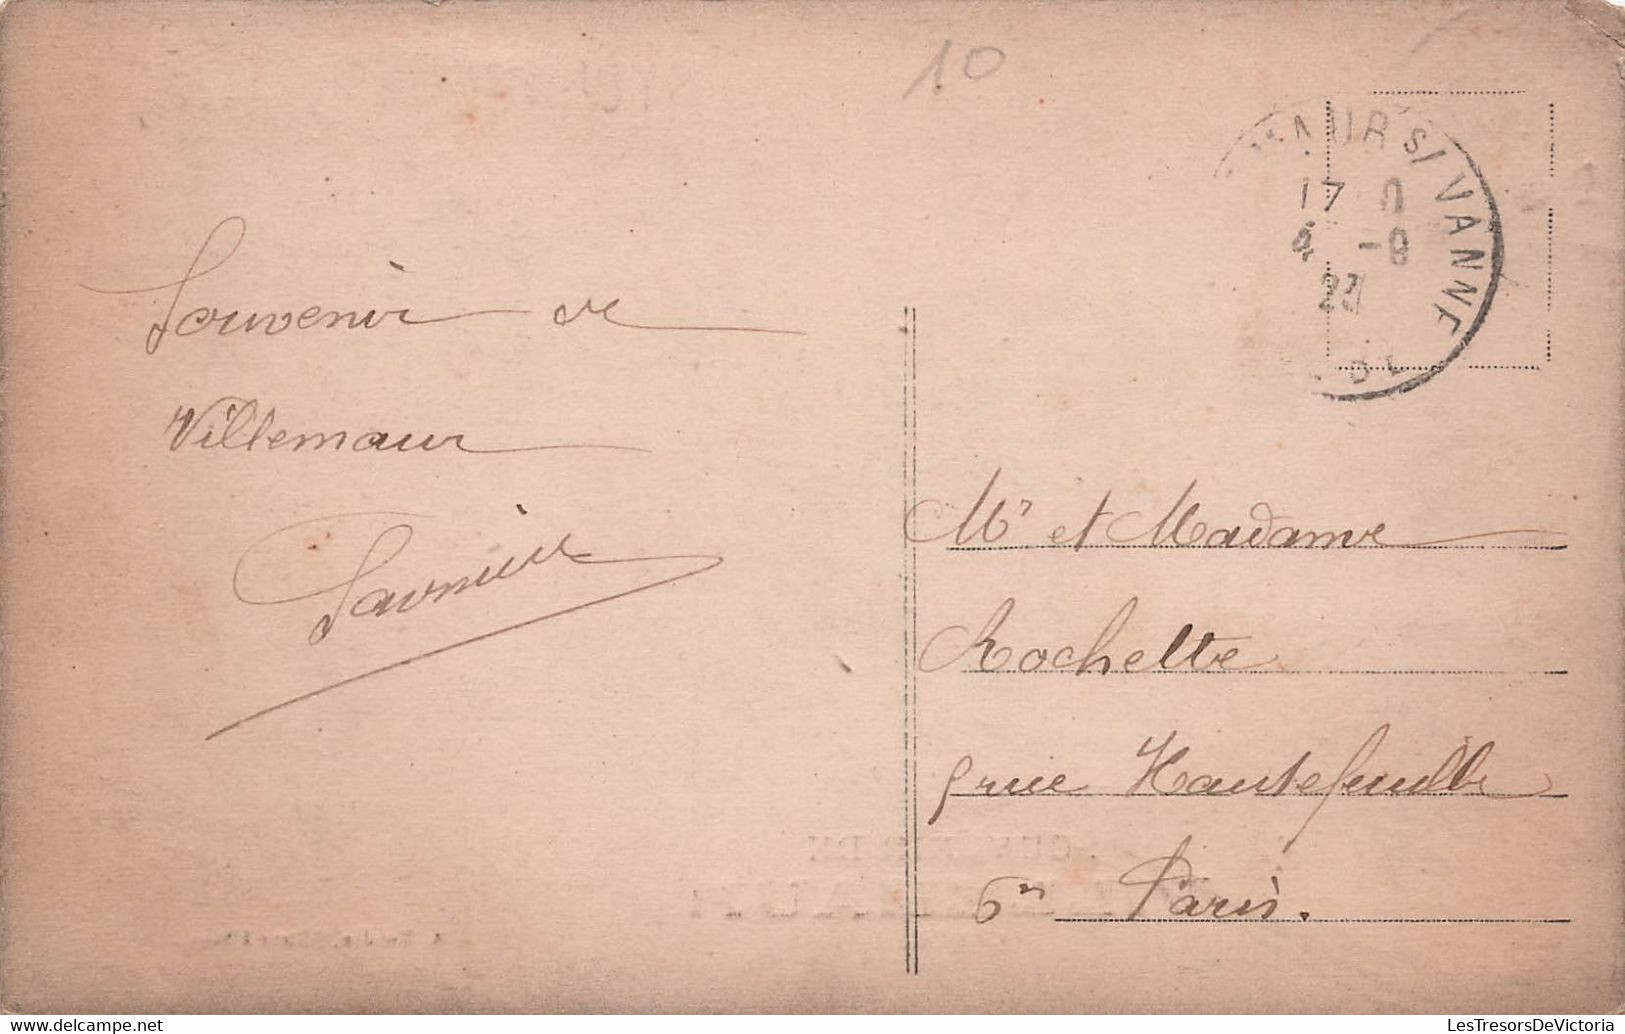 10
MAUR S/ VANNE
17
4 -8
23
Souvenir de
Villemaur
Mr et Madame
Rochette
5 rue Hautefeuille
6e Paris.
delcampe.net
LesTresorsDeVictoria